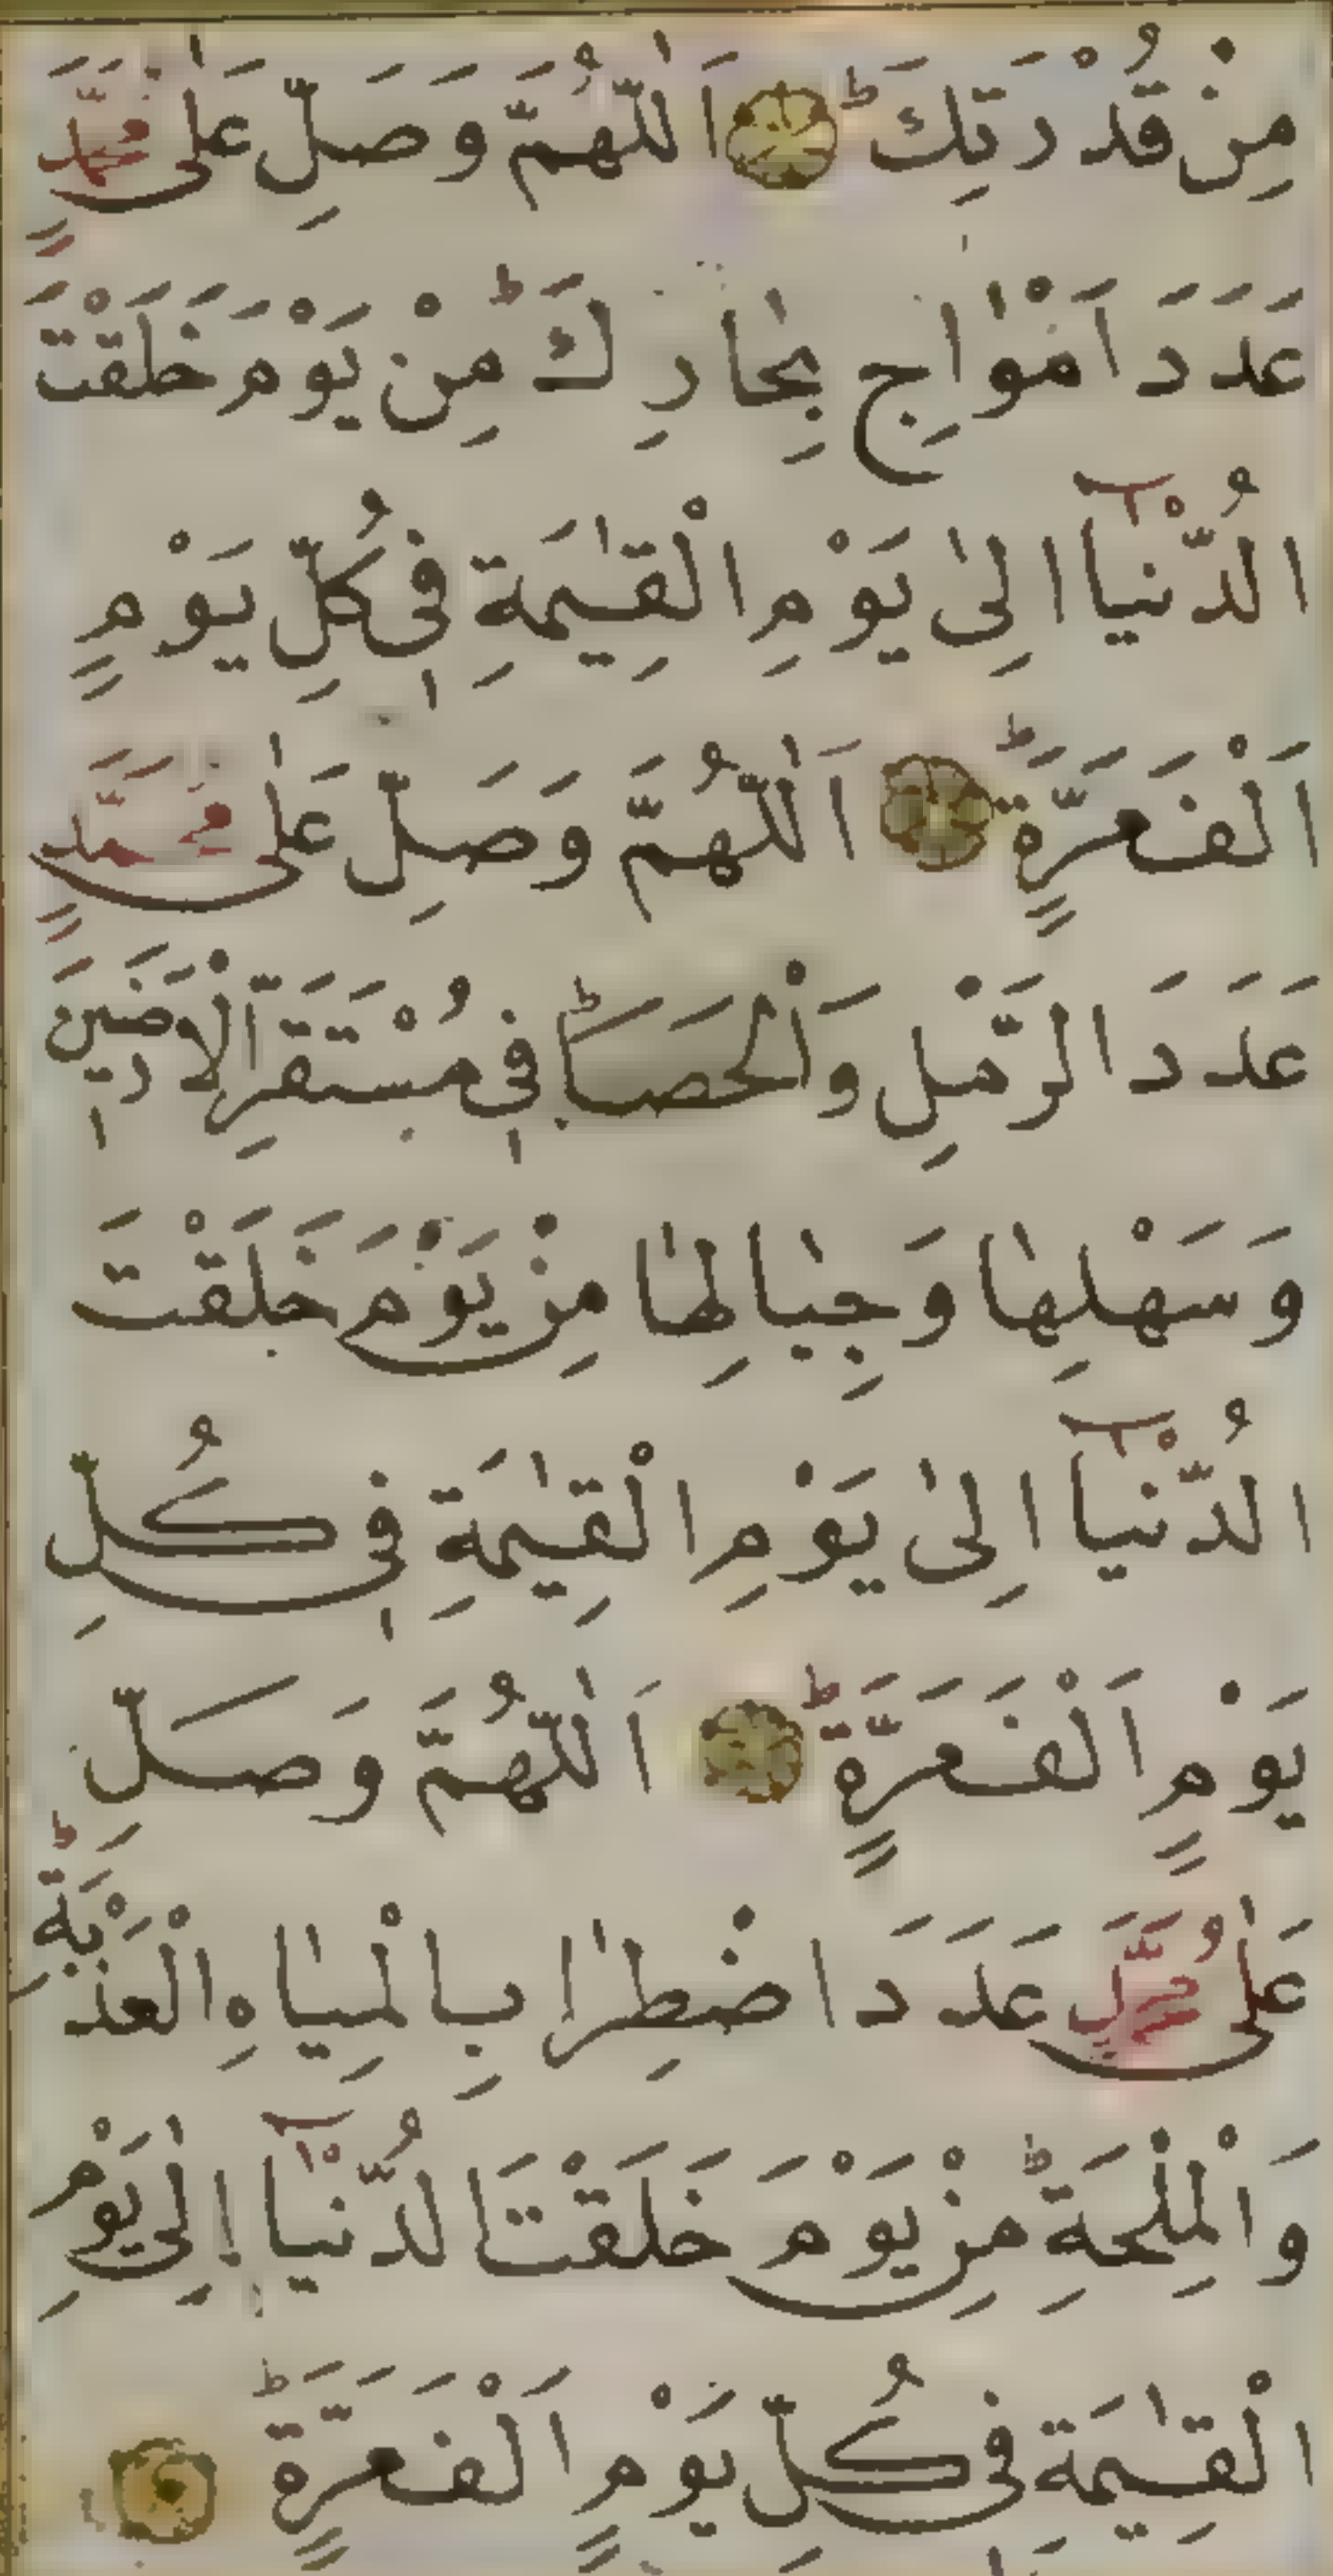 مِنْ قُدْرَتِكَ ط اَللّٰهُمَّ وَصَلِّ عَلٰى مُحَمَّدٍ
عَدَدَ اَمْوٰاجِ بِحٰارِكَ ط مِنْ يَوْمَ خَلَقْتَ
الدُّنْيٰٓا اِلىٰ يَوْمِ الْقِيٰمَةِ فِى كُلِّ يَوْمٍ
اَلْفَ مَرَّةٍ ط اَللّٰهُمَّ وَصَلِّ عَلٰى مُحَمَّدٍ
عَدَدَ الرَّمْلِ وَالْحَصَا ط فِى مُسْتَقَرِّ الْاَرَضٖينَ
وَسَهْلِهٰا وَجِبٰالِهٰا مِنْ يَوْمَ خَلَقْتَ
الدُّنْيٰٓا اِلىٰ يَوْمِ الْقِيٰمَةِ فِى كُلِّ
يَوْمٍ اَلْفَ مَرَّةٍ ط اَللّٰهُمَّ وَصَلِّ
عَلٰى مُحَمَّدٍ عَدَدَ اضْطِرٰابِ الْمِيٰاهِ الْعَذْبَةِ ط
وَالْمِلْحَةِ ط مِنْ يَوْمَ خَلَقْتَ الدُّنْيٰٓا اِلٰى يَوْمِ
الْقِيٰمَةِ فِى كُلِّ يَوْمٍ اَلْفَ مَرَّةٍ ط